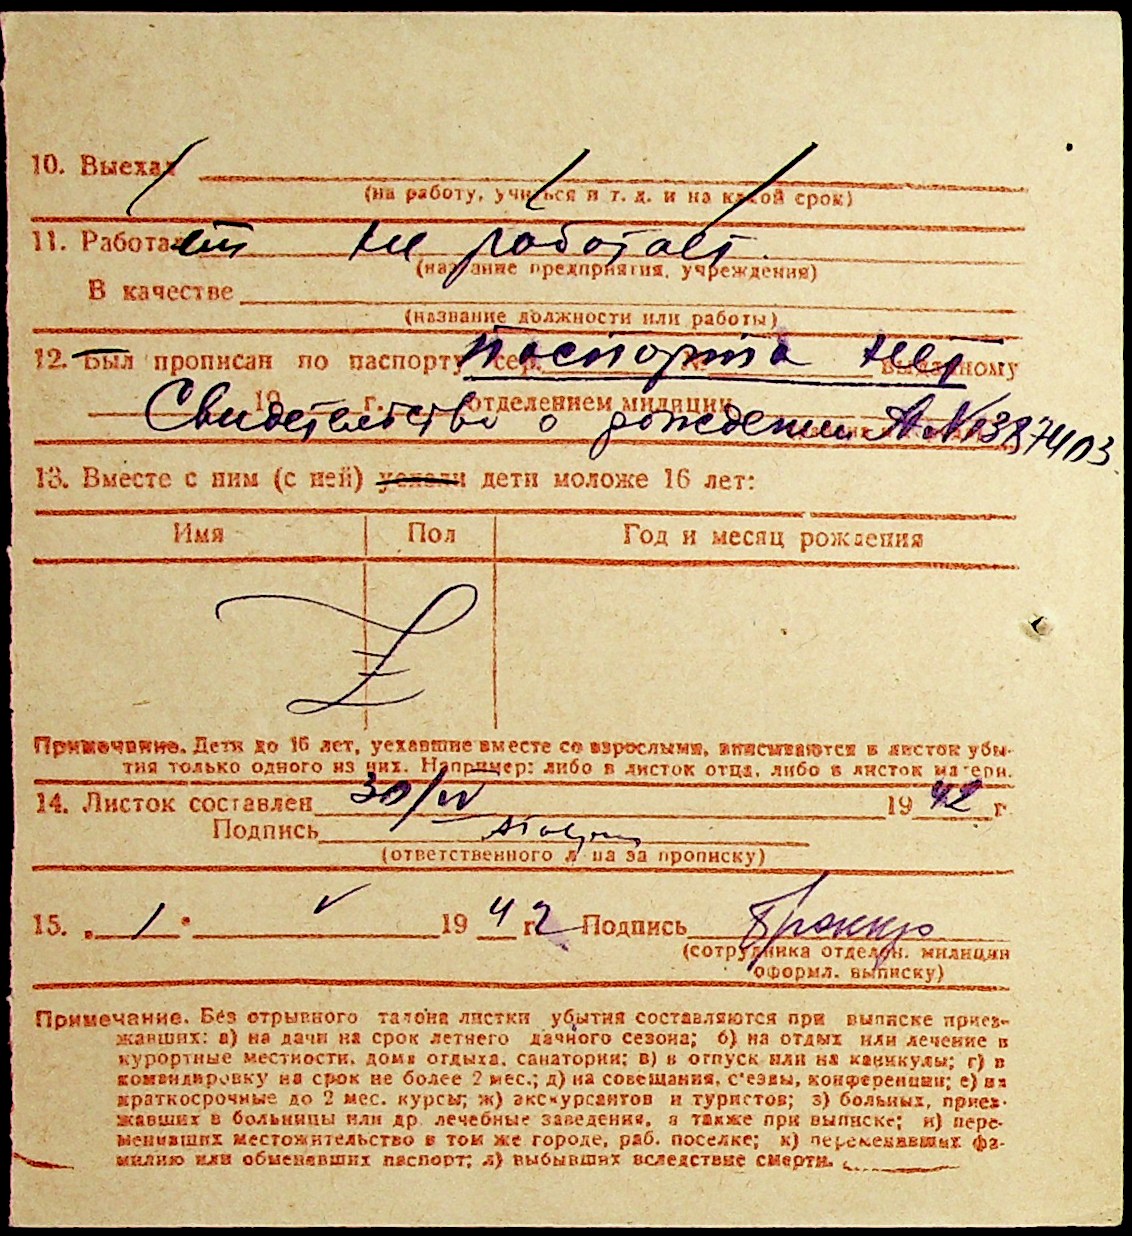 10. Выехал
(на работу, учиться и т. д. и на какой срок)
11. Работает не работает.
(название предприятия, учреждения)
В качестве
(название должности или работы)
12. Был прописан по паспорту сер. № выданному
Паспорта нет
19 г. отделением милиции
Свидетельство о рождении А № 1387403
13. Вместе с ним (с ней) уехали дети моложе 16 лет:
Имя Пол Год и месяц рождения
Z
Примечание. Дети до 16 лет, уехавшие вместе со взрослыми, вписываются в листок убы-
тия только одного из них. Например: либо в листок отца, либо в листок матери.
14. Листок составлен 30/IV 1942 г.
Подпись
(ответственного лица за прописку)
15. „1" V 1942 г. Подпись
(сотрудника отделен. милиции
оформл. выписку)
Примечание. Без отрывного талона листки убытия составляются при выписке приез-
жавших: а) на дачи на срок летнего дачного сезона; б) на отдых или лечение в
курортные местности, дома отдыха, санатории; в) в отпуск или на каникулы; г) в
командировку на срок не более 2 мес.; д) на совещания, с'езды, конференции; е) на
краткосрочные до 2 мес. курсы; ж) экскурсантов и туристов; з) больных, приез-
жавших в больницы или др. лечебные заведения, а также при выписке; и) пере-
менивших местожительство в том же городе, раб. поселке; к) переменивших фа-
милию или обменявших паспорт; л) выбывших вследствие смерти.